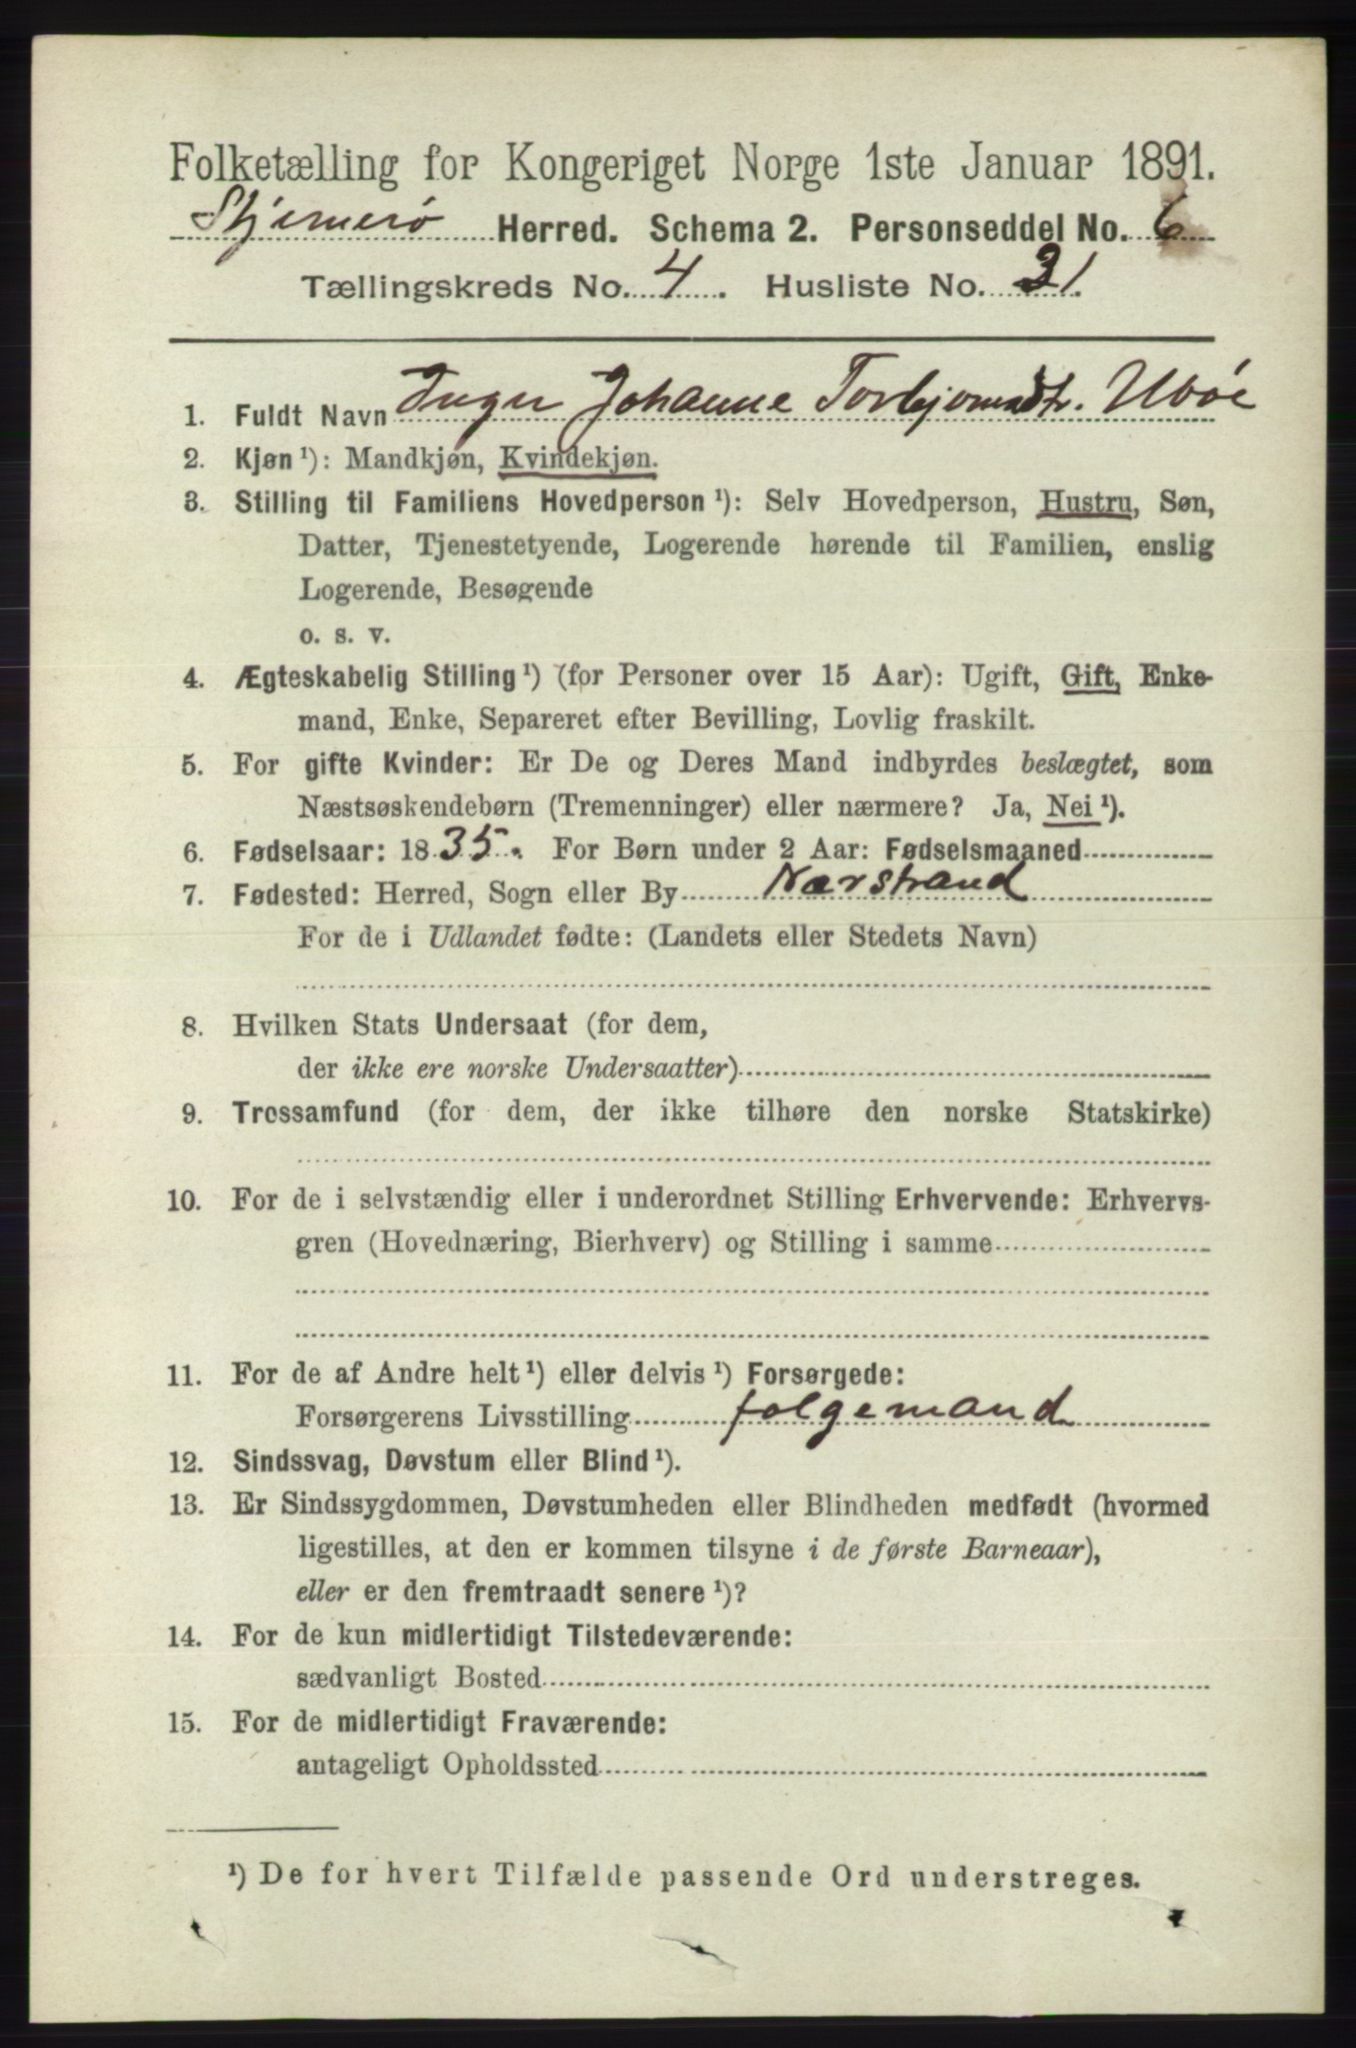 Folketælling for Kongeriget Norge 1ste Januar 1891.
Stjernerø Herred. Schema 2. Personseddel No. 6
Tællingskreds No. 4. Husliste No. 31.
1. Fuldt Navn Inger Johanne Torbjørnsdtr. Ubøe
2. Kjøn ¹): Mandkjøn, Kvindekjøn.
3. Stilling til Familiens Hovedperson ¹): Selv Hovedperson, Hustru, Søn,
Datter, Tjenestetyende, Logerende hørende til Familien, enslig
Logerende, Besøgende
o. s. v.
4. Ægteskabelig Stilling ¹) (for Personer over 15 Aar): Ugift, Gift, Enke-
mand, Enke, Separeret efter Bevilling, Lovlig fraskilt.
5. For gifte Kvinder: Er De og Deres Mand indbyrdes beslægtet, som
Næstsøskendebørn (Tremenninger) eller nærmere? Ja, Nei ¹).
6. Fødselsaar: 1835. For Børn under 2 Aar: Fødselsmaaned
7. Fødested: Herred, Sogn eller By Nærstrand
For de i Udlandet fødte: (Landets eller Stedets Navn)
8. Hvilken Stats Undersaat (for dem,
der ikke ere norske Undersaatter)
9. Trossamfund (for dem, der ikke tilhøre den norske Statskirke)
10. For de i selvstændig eller i underordnet Stilling Erhvervende: Erhvervs-
gren (Hovednæring, Bierhverv) og Stilling i samme
11. For de af Andre helt ¹) eller delvis ¹) Forsørgede:
Forsørgerens Livsstilling folgemand
12. Sindssvag, Døvstum eller Blind ¹).
13. Er Sindssygdommen, Døvstumheden eller Blindheden medfødt (hvormed
ligestilles, at den er kommen tilsyne i de første Barneaar),
eller er den fremtraadt senere ¹)?
14. For de kun midlertidigt Tilstedeværende:
sædvanligt Bosted
15. For de midlertidigt Fraværende:
antageligt Opholdssted
¹) De for hvert Tilfælde passende Ord understreges.